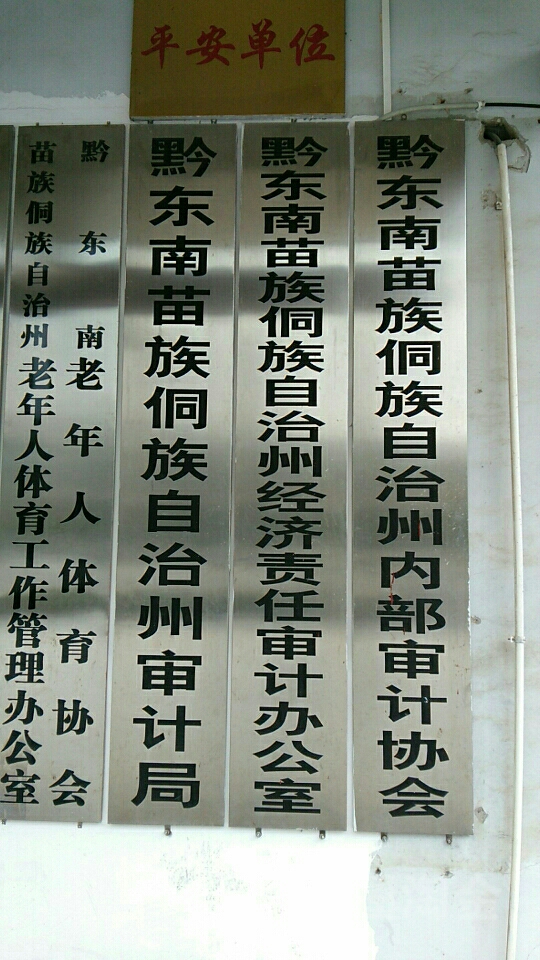 平安单位
黔东南苗族侗族自治州内部审计协会
黔东南苗族侗族自治州经济责任审计办公室
黔东南苗族侗族自治州审计局
黔东南老年人体育协会
苗族侗族自治州老年人体育工作管理办公室